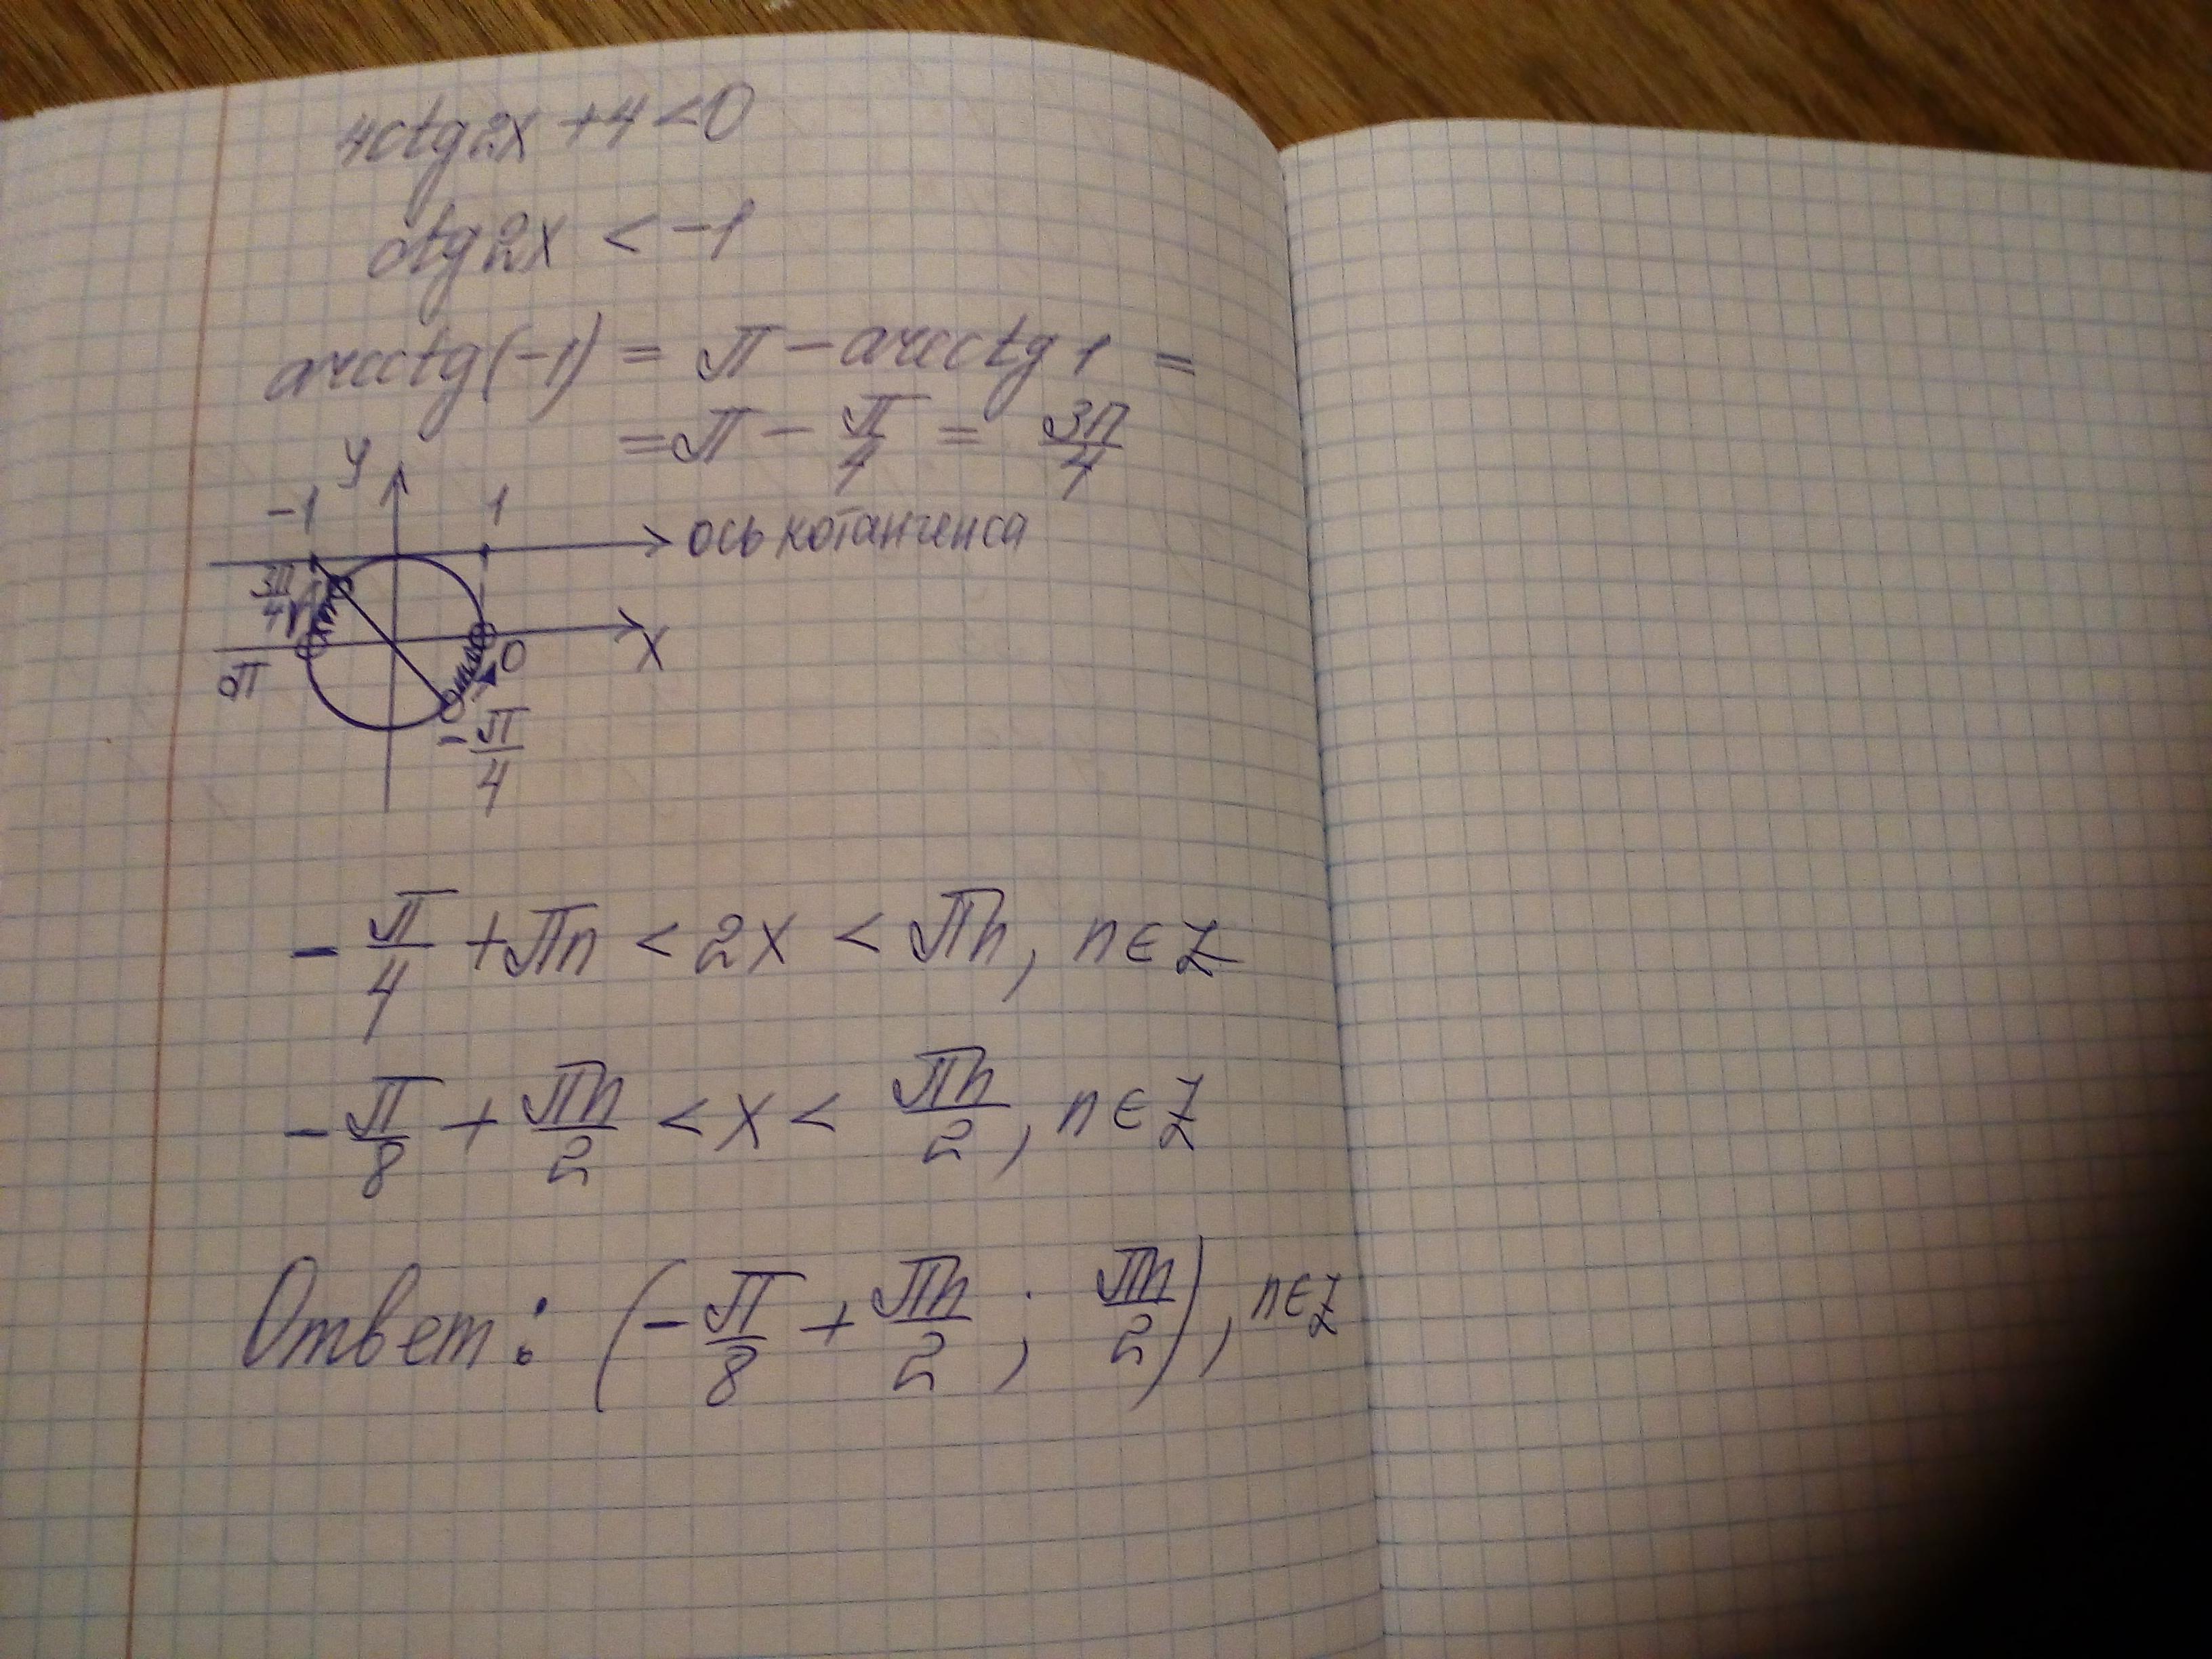 4ctg2x + 4 < 0
ctg2x < -1
arcctg(-1) = π - arcctg 1 =
= π - π/4 = 3π/4
y
-1 1
ось котангенса
3π/4
π 0 x
-π/4
-π/4 + πn < 2x < πn, n ∈ Z
-π/8 + πn/2 < x < πn/2, n ∈ Z
Ответ: (-π/8 + πn/2 ; πn/2), n ∈ Z